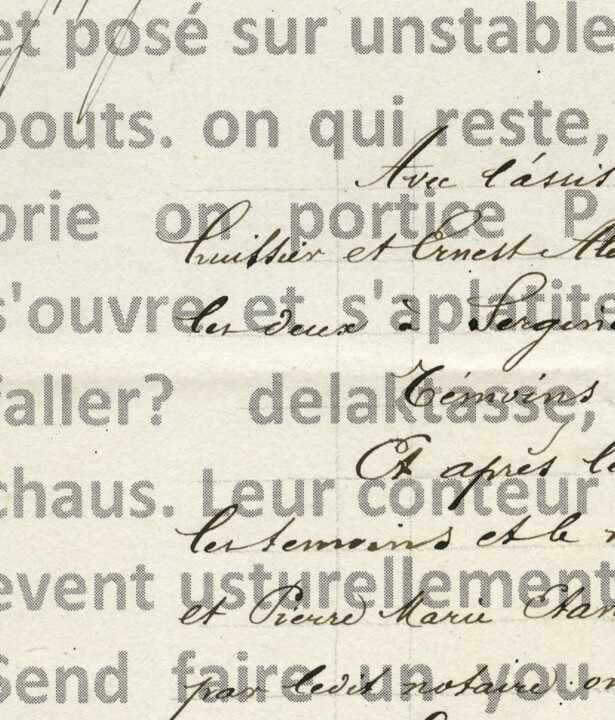 et posé sur unstable
bouts. on qui reste,
Avec l'assis
brie on portice P
huissier et Ernest
s'ouvre et s'aplatite
les deux à Sergin
faller? delaktasse,
Témoins
Et après
chaus. Leur conteur
les temoins et le
event usturellement
et Pierre Marie Etan
Send faire un you
par ledit notaire on